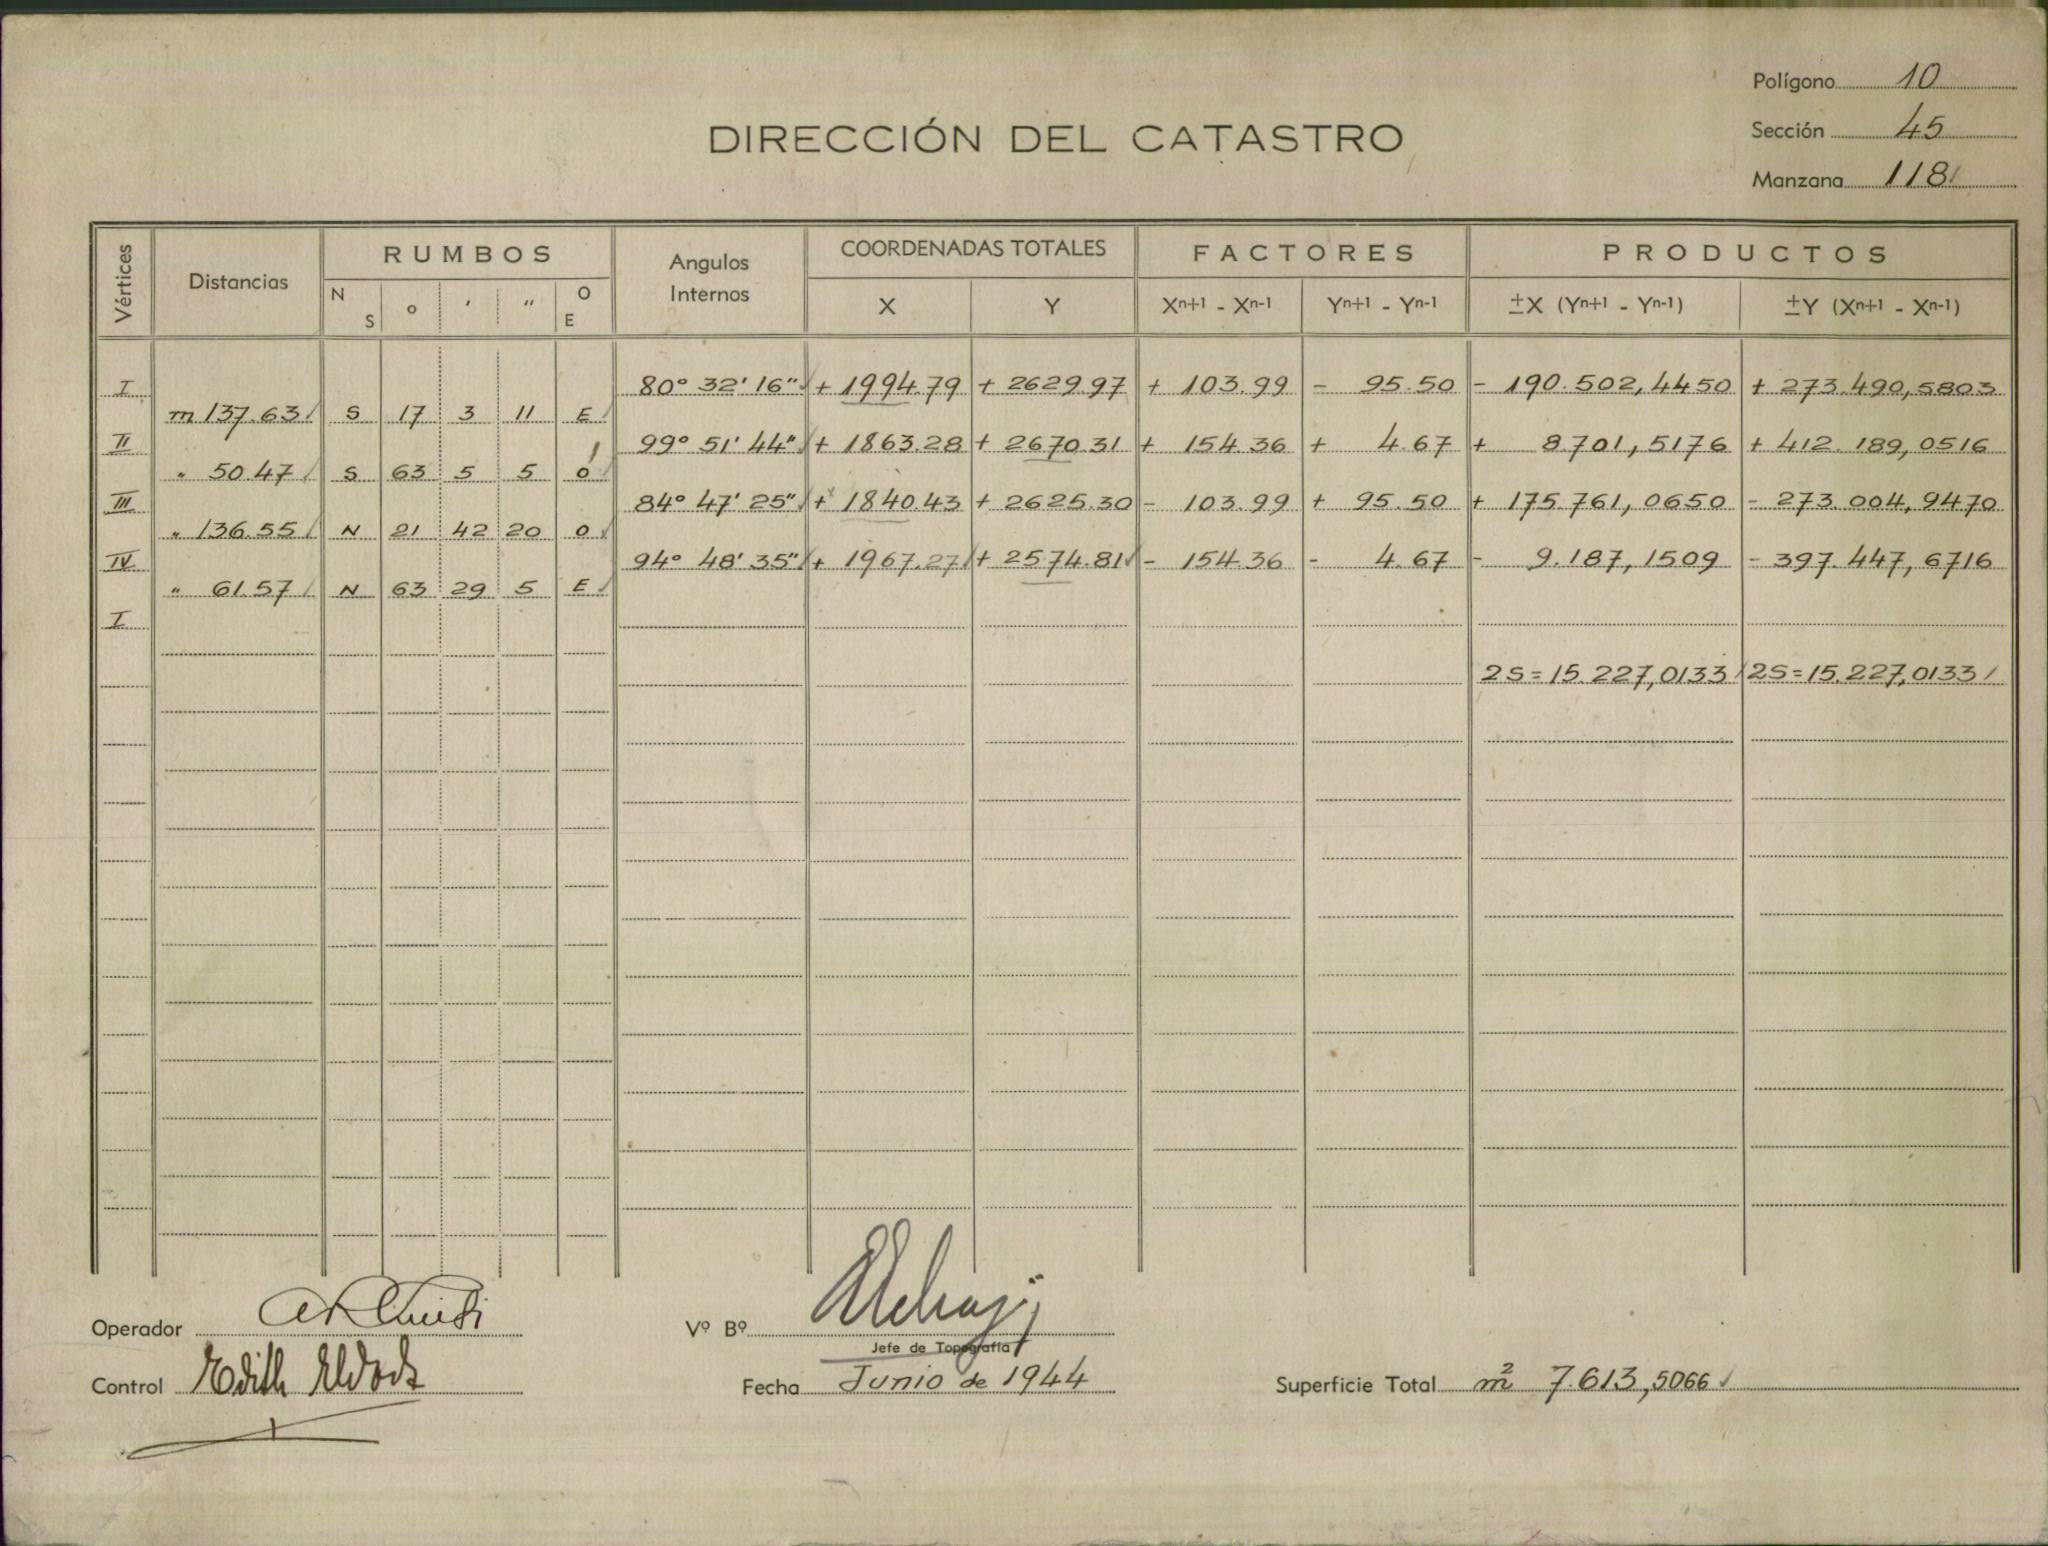 Polígono 10
Sección 45
Manzana 118
DIRECCIÓN DEL CATASTRO
Vértices Distancias RUMBOS Angulos Internos COORDENADAS TOTALES FACTORES PRODUCTOS
N S o ' " O E X Y Xn+1 - Xn-1 Yn+1 - Yn-1 ±X (Yn+1 - Yn-1) ±Y (Xn+1 - Xn-1)
I 80° 32' 16" + 1994.79 + 2629.97 + 103.99 - 95.50 - 190.502,4450 + 273.490,5803
m 137.63 S 17 3 11 E
II 99° 51' 44" + 1863.28 + 2670.31 + 154.36 + 4.67 + 8.701,5176 + 412.189,0516
" 50.47 S 63 5 5 O
III 84° 47' 25" + 1840.43 + 2625.30 - 103.99 + 95.50 + 175.761,0650 - 273.004,9470
" 136.55 N 21 42 20 O
IV 94° 48' 35" + 1967.27 + 2574.81 - 154.36 - 4.67 - 9.187,1509 - 397.447,6716
" 61.57 N 63 29 5 E
I
2S=15.227,0133 2S=15.227,0133
Operador
Vº Bº
Jefe de Topografía
Control Edith
Fecha Junio de 1944
Superficie Total m² 7.613,5066